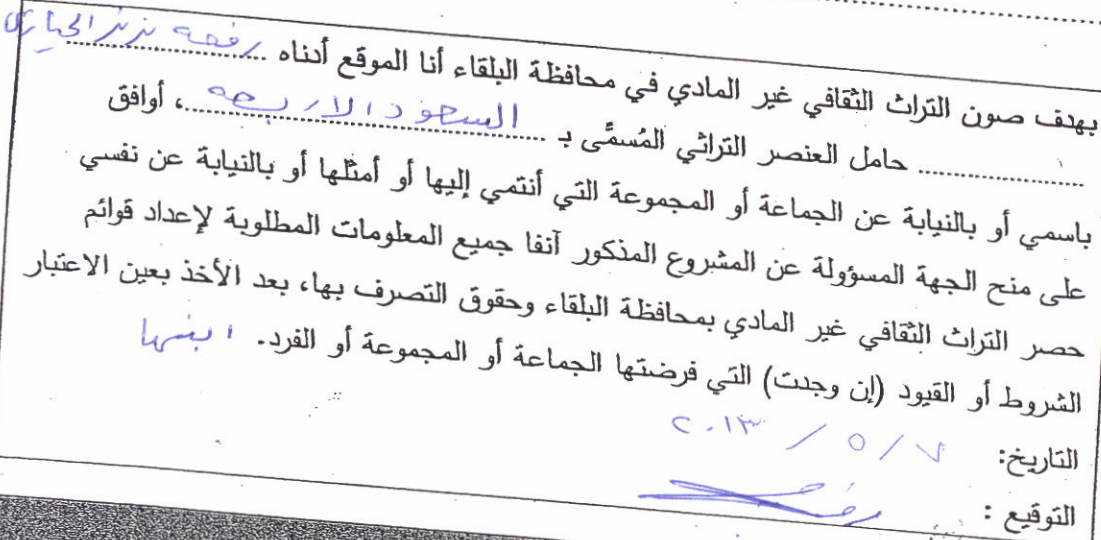 بهدف صون التراث الثقافي غير المادي في محافظة البلقاء أنا الموقع أدناه رفعه الحياري
حامل العنصر التراثي المُسمَّى بـ السعود الاربعه، أوافق
باسمي أو بالنيابة عن الجماعة أو المجموعة التي أنتمي إليها أو أمثلها أو بالنيابة عن نفسي
على منح الجهة المسؤولة عن المشروع المذكور آنفا جميع المعلومات المطلوبة لإعداد قوائم
حصر التراث الثقافي غير المادي بمحافظة البلقاء وحقوق التصرف بها، بعد الأخذ بعين الاعتبار
الشروط أو القيود (إن وجدت) التي فرضتها الجماعة أو المجموعة أو الفرد.
التاريخ: ٧ / ٥ / ٢٠١٣
التوقيع :